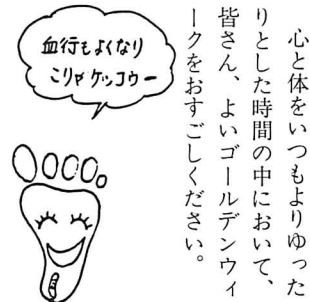 心と体をいつもよりゆった
りとした時間の中において、
皆さん、よいゴールデンウィ
ークをおすごしください。
血行もよくなり
こりゃケッコウー